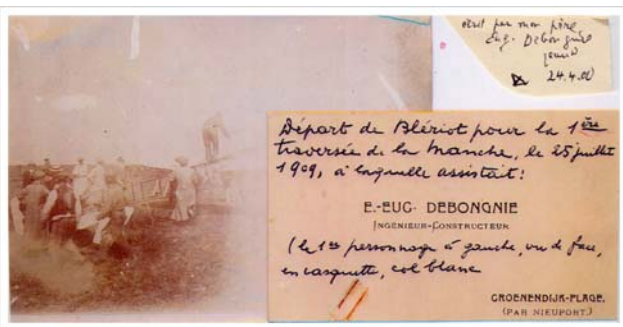 écrit par mon père
Eug. Debongnie
24.4.00
Départ de Blériot pour la 1ère
traversée de la Manche, le 25 juillet
1909, à laquelle assistait:
E.-EUG. DEBONGNIE
INGÉNIEUR-CONSTRUCTEUR
(le 1er personnage à gauche, vu de face,
en casquette, col blanc
GROENENDIJK-PLAGE.
(PAR NIEUPORT.)